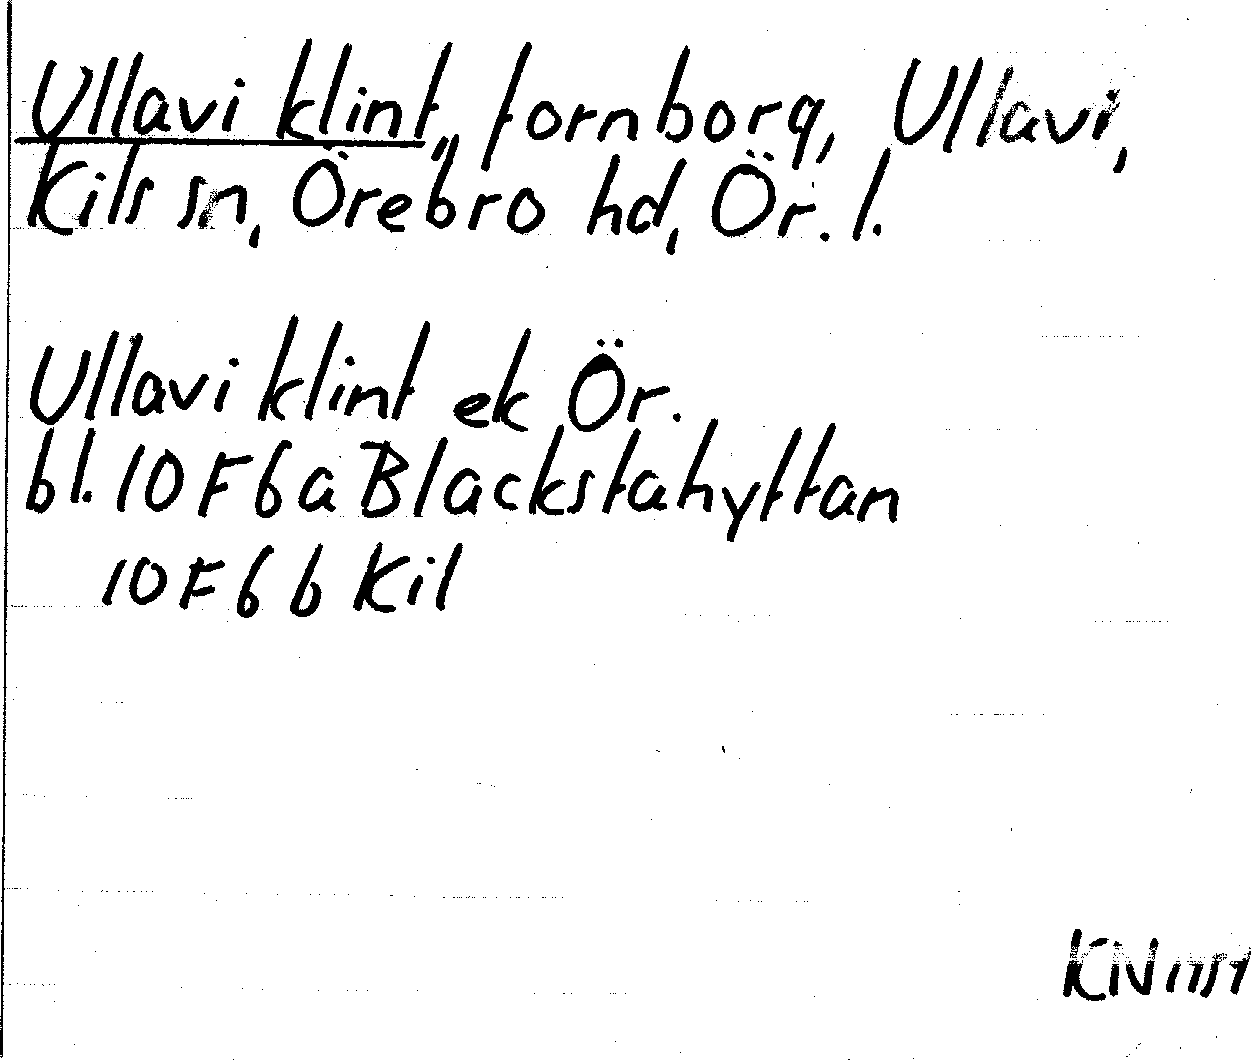 Ullavi klint, fornborg, Ullavi,
Kils sn, Örebro hd, Ör. l.
Ullavi klint ek Ör.
bl. 10 F 6 a Blackstahyttan
10 F 6 b Kil